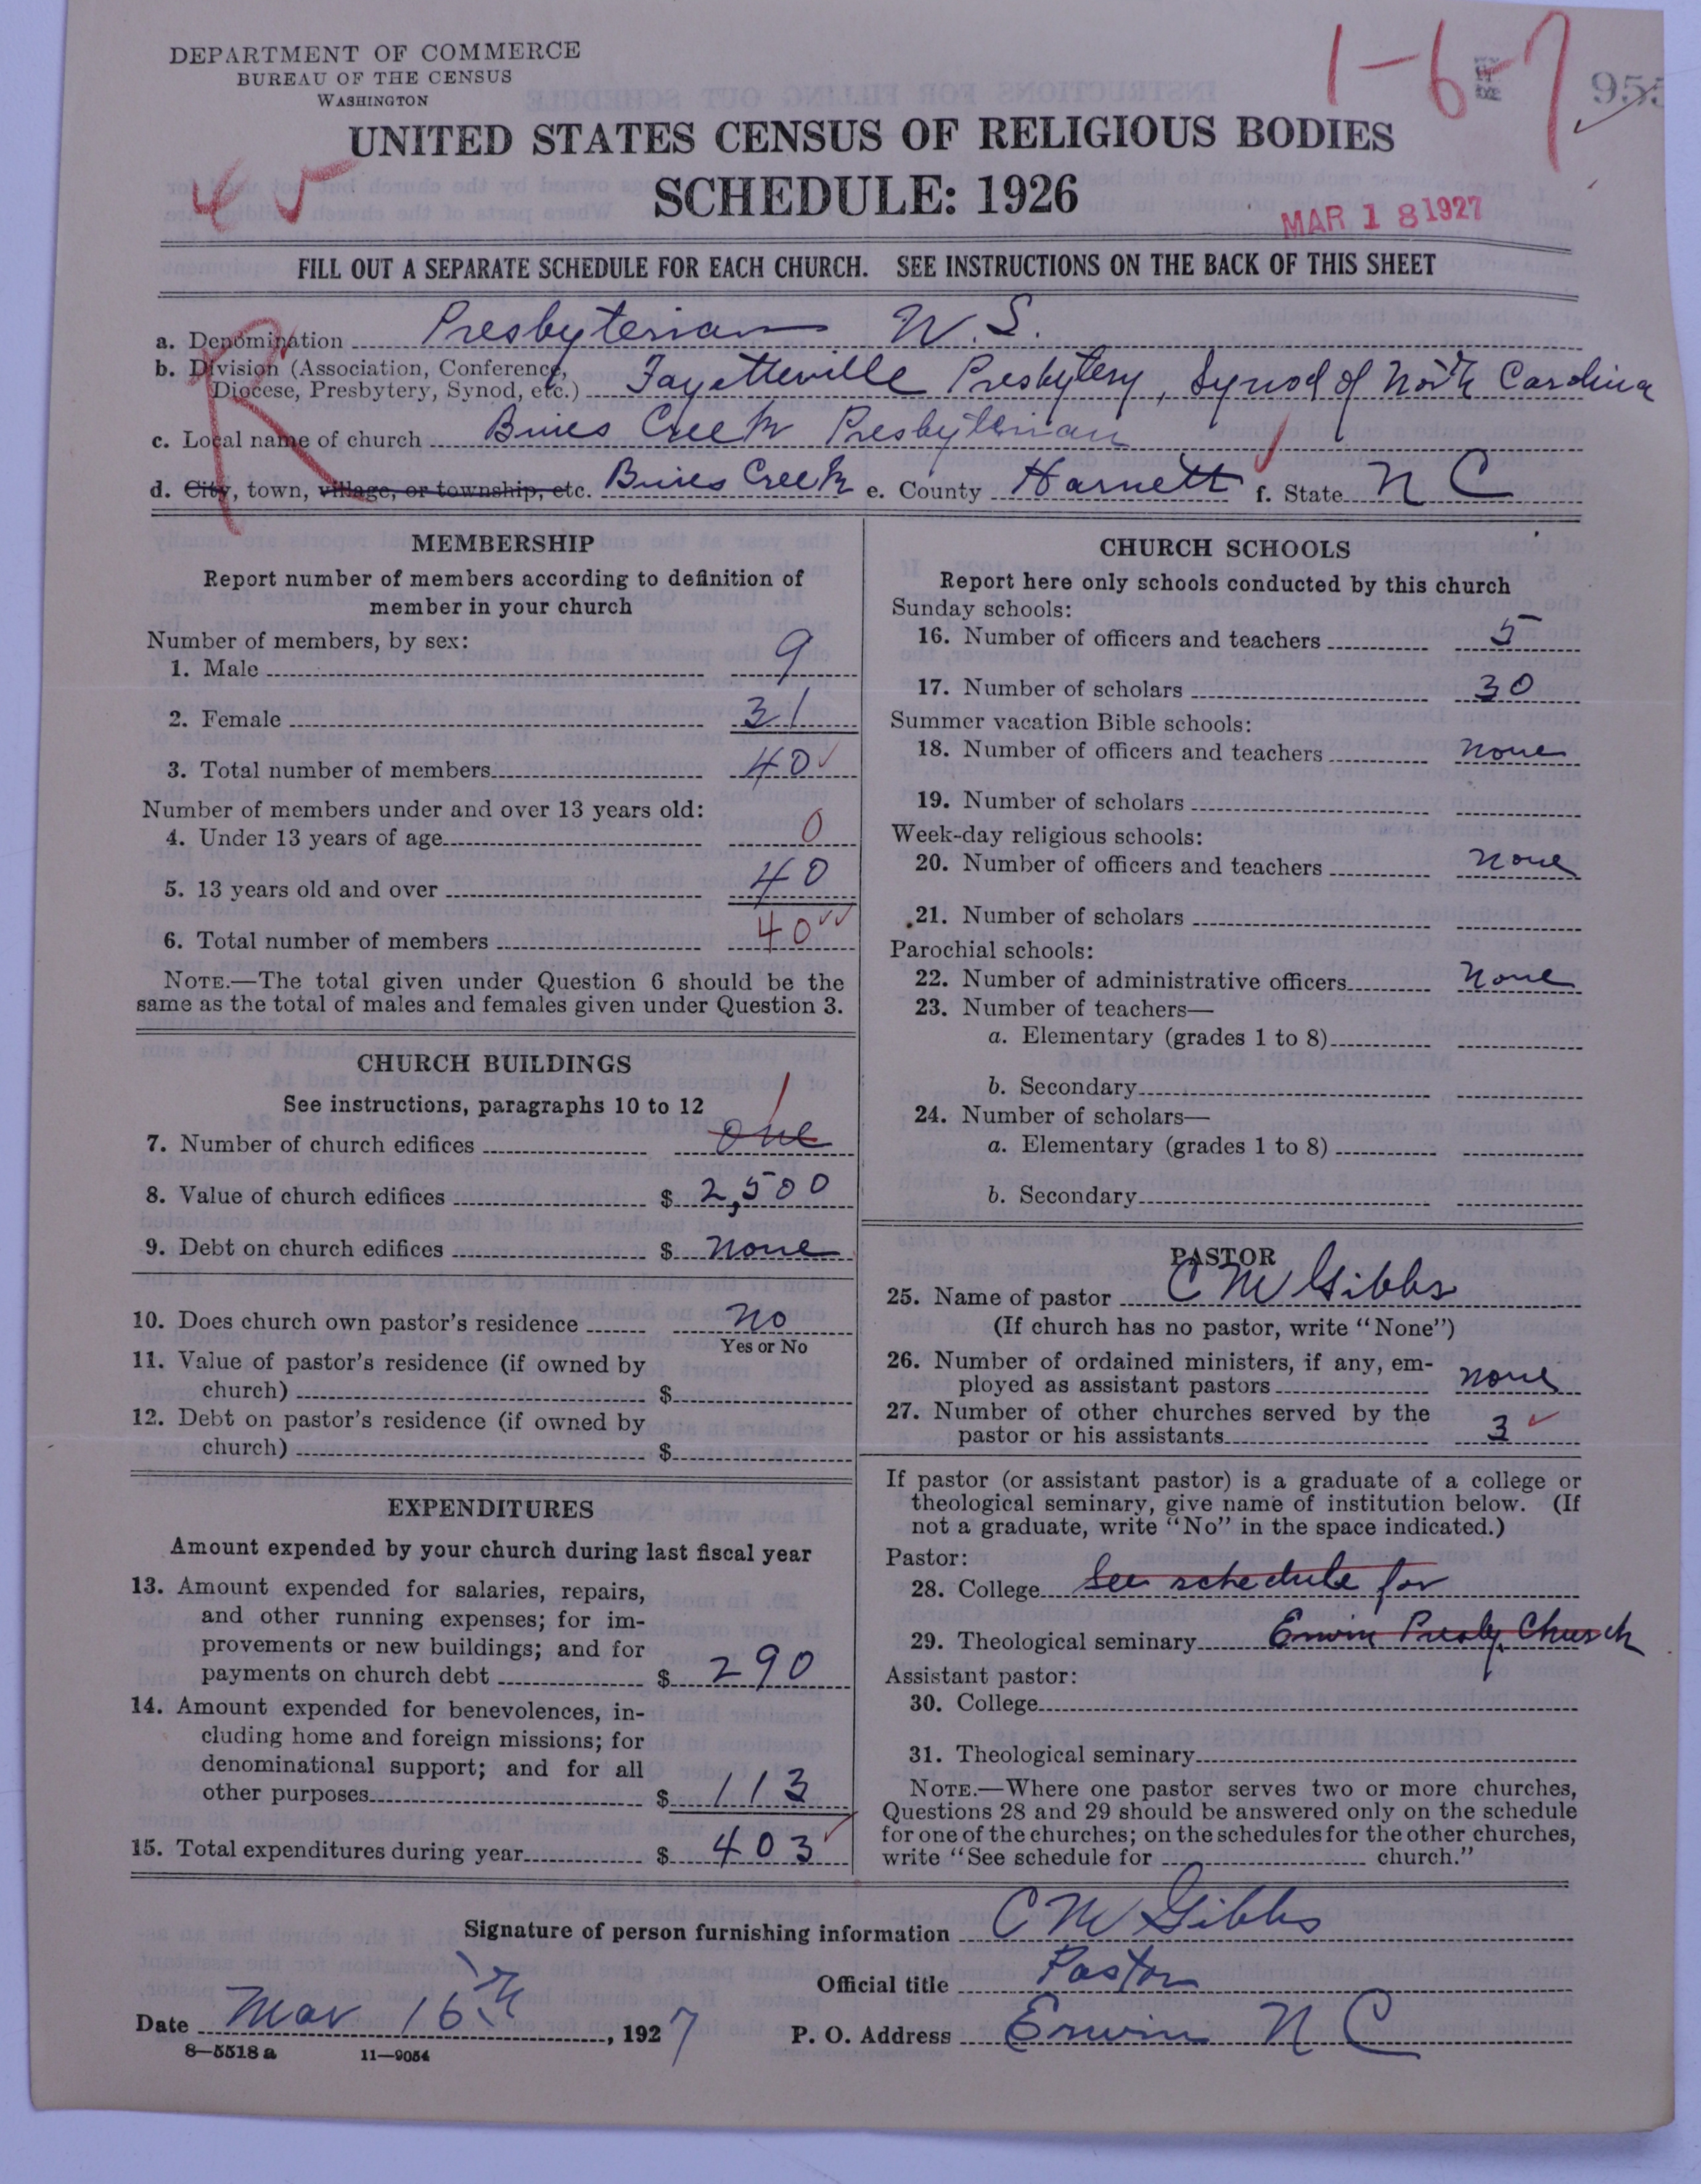 DEPARTMENT OF COMMERCE
BUREAU OF THE CENSUS
WASHINGTON
1-6-7
955
UNITED STATES CENSUS OF RELIGIOUS BODIES
SCHEDULE: 1926
45
MAR 18 1927
FILL OUT A SEPARATE SCHEDULE FOR EACH CHURCH. SEE INSTRUCTIONS ON THE BACK OF THIS SHEET
R
a. Denomination Presbyterian U. S.
b. Division (Association, Conference, Diocese, Presbytery, Synod, etc.) Fayetteville Presbytery, Synod of North Carolina
c. Local name of church Buies Creek Presbyterian
d. City, town, village, or township, etc. Buies Creek e. County Harnett f. State N C
MEMBERSHIP
Report number of members according to definition of
member in your church
Number of members, by sex:
1. Male 9
2. Female 31
3. Total number of members 40
Number of members under and over 13 years old:
4. Under 13 years of age 0
5. 13 years old and over 40
6. Total number of members 40
NOTE.—The total given under Question 6 should be the
same as the total of males and females given under Question 3.
CHURCH BUILDINGS
See instructions, paragraphs 10 to 12
1
7. Number of church edifices one
8. Value of church edifices $ 2,500
9. Debt on church edifices $ none
10. Does church own pastor's residence no
Yes or No
11. Value of pastor's residence (if owned by
church) $
12. Debt on pastor's residence (if owned by
church) $
EXPENDITURES
Amount expended by your church during last fiscal year
13. Amount expended for salaries, repairs,
and other running expenses; for im-
provements or new buildings; and for
payments on church debt $ 290
14. Amount expended for benevolences, in-
cluding home and foreign missions; for
denominational support; and for all
other purposes $ 113
15. Total expenditures during year $ 403
CHURCH SCHOOLS
Report here only schools conducted by this church
Sunday schools:
16. Number of officers and teachers 5
17. Number of scholars 30
Summer vacation Bible schools:
18. Number of officers and teachers none
19. Number of scholars
Week-day religious schools:
20. Number of officers and teachers none
21. Number of scholars
Parochial schools:
22. Number of administrative officers None
23. Number of teachers—
a. Elementary (grades 1 to 8)
b. Secondary
24. Number of scholars—
a. Elementary (grades 1 to 8)
b. Secondary
PASTOR
25. Name of pastor C M Gibbs
(If church has no pastor, write "None")
26. Number of ordained ministers, if any, em-
ployed as assistant pastors none
27. Number of other churches served by the
pastor or his assistants 3
If pastor (or assistant pastor) is a graduate of a college or
theological seminary, give name of institution below. (If
not a graduate, write "No" in the space indicated.)
Pastor:
28. College See schedule for
29. Theological seminary Erwin Presby. Church
Assistant pastor:
30. College
31. Theological seminary
NOTE.—Where one pastor serves two or more churches,
Questions 28 and 29 should be answered only on the schedule
for one of the churches; on the schedules for the other churches,
write "See schedule for church."
Signature of person furnishing information C M Gibbs
Official title Pastor
Date Mar 16th, 1927 P. O. Address Erwin N C
8—5518 a 11—9054